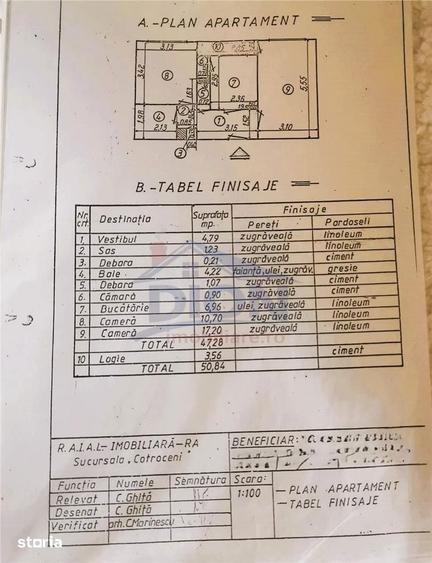 A.-PLAN APARTAMENT
3,13
10
3,42
8
6
2,95
7
5,55
9
1,63
5
2,36
1,98
4
2
2,13
0,85
1
3,15
1,52
3,10
3
B.-TABEL FINISAJE
Nr. crt. Destinația Suprafața mp. Finisaje
Pereți Pardoseli
1. Vestibul 4,79 zugrăveală linoleum
2. Sas 1,23 zugrăveală linoleum
3. Debara 0,21 zugrăveală ciment
4. Baie 4,22 faianță,ulei,zugrăv. gresie
5. Debara 1,07 zugrăveală ciment
6. Cămară 0,90 zugrăveală ciment
7. Bucătărie 6,96 ulei, zugrăveală linoleum
8. Cameră 10,70 zugrăveală linoleum
9. Cameră 17,20 zugrăveală linoleum
TOTAL 47,28
10 Logie 3,56 ciment
TOTAL 50,84
imobiliare.ro
R.A.I.A.L- IMOBILIARĂ-RA
Sucursala Cotroceni
BENEFICIAR:
Funcția Numele Semnătura Scara:
Relevat C. Ghiță 1:100 - PLAN APARTAMENT
Desenat C. Ghiță - TABEL FINISAJE
Verificat arh.C.Marinescu
storia